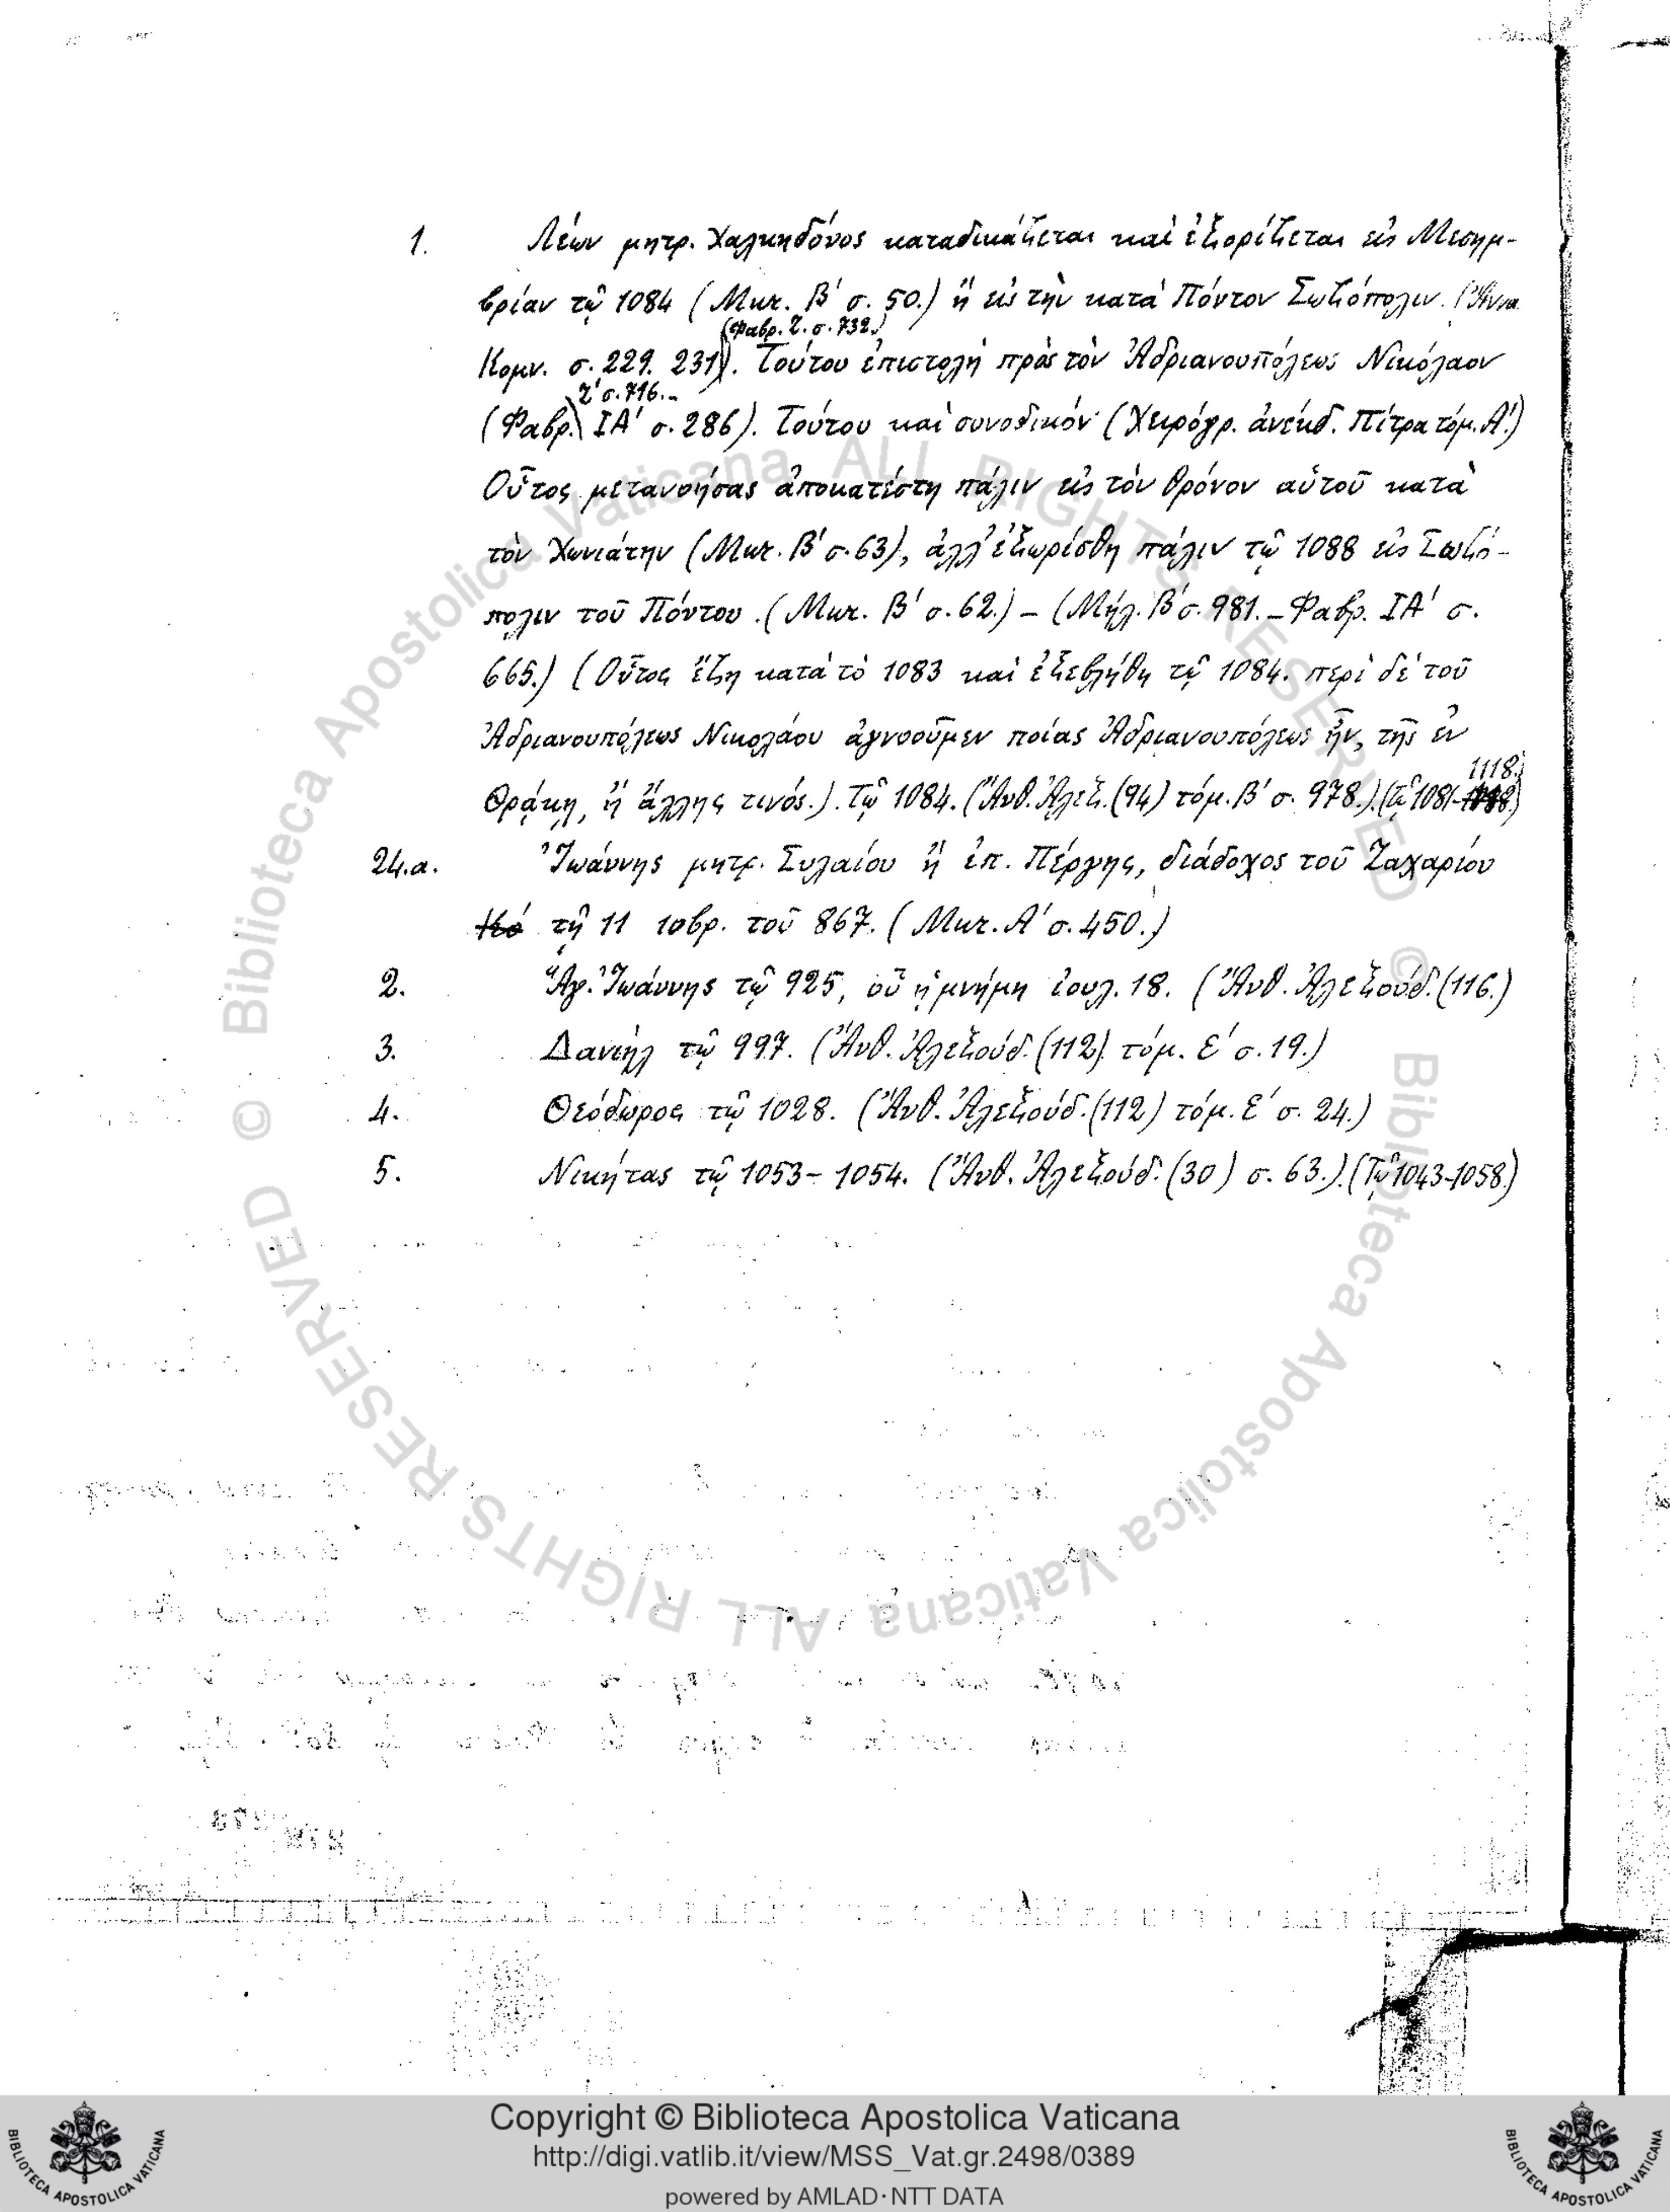 1. Λέων μητρ. Χαλκηδόνος καταδικάζεται καὶ ἐξορίζεται εἰς Μεσημ-
βρίαν τῷ 1084 (Μελ. Β΄ σ. 50.) ἢ εἰς τὴν κατὰ Πόντον Σωζόπολιν. (Ἄννα
(Φαβρ. Ζ. σ. 732.)
Κομν. σ. 229. 231). Τούτου ἐπιστολὴ πρὸς τὸν Ἀδριανουπόλεως Νικόλαον
Ζ΄ σ. 716.-
(Φαβρ. ΙΑ΄ σ. 286). Τούτου καὶ συνοδικόν (Χειρόγρ. ἀνέκδ. Πίτρα τόμ. Α΄)
Οὗτος μετανοήσας ἀποκατέστη πάλιν εἰς τὸν θρόνον αὑτοῦ κατὰ
τὸν Χωνιάτην (Μελ. Β΄ σ. 63), ἀλλ' ἐξωρίσθη πάλιν τῷ 1088 εἰς Σωζό-
πολιν τοῦ Πόντου. (Μελ. Β΄ σ. 62.) – (Μήλ. Β΄ σ. 981. – Φαβρ. ΙΑ΄ σ.
665.) (Οὗτος ἔζη κατὰ τὸ 1083 καὶ ἐξεβλήθη τῷ 1084. περὶ δὲ τοῦ
Ἀδριανουπόλεως Νικολάου ἀγνοοῦμεν ποίας Ἀδριανουπόλεως ἦν, τῆς ἐν
1118.)
Θρᾴκῃ, ἢ ἄλλης τινός.). Τῷ 1084. (Ἄνθ. Ἀλεξ. (94) τόμ. Β΄ σ. 978.). (Τῷ 1081-
24.α. Ἰωάννης μητρ. Συλαίου ἢ ἐπ. Πέργης, διάδοχος τοῦ Ζαχαρίου
τῇ 11 10βρ. τοῦ 867. (Μελ. Α΄ σ. 450.)
2. Ἅγ. Ἰωάννης τῷ 925, οὗ ἡ μνήμη ἰουλ. 18. (Ἄνθ. Ἀλεξούδ. (116.)
3. Δανιὴλ τῷ 997. (Ἄνθ. Ἀλεξούδ. (112) τόμ. Ε΄ σ. 19.)
4. Θεόδωρος τῷ 1028. (Ἄνθ. Ἀλεξούδ. (112) τόμ. Ε΄ σ. 24.)
5. Νικήτας τῷ 1053 – 1054. (Ἄνθ. Ἀλεξούδ. (30) σ. 63.). (Τῷ 1043-1058.)
© Biblioteca Apostolica Vaticana ALL RIGHTS RESERVED © Biblioteca Apostolica Vaticana ALL RIGHTS RESERVED
BIBLIOTECA APOSTOLICA VATICANA
Copyright © Biblioteca Apostolica Vaticana
http://digi.vatlib.it/view/MSS_Vat.gr.2498/0389
powered by AMLAD·NTT DATA
BIBLIOTECA APOSTOLICA VATICANA